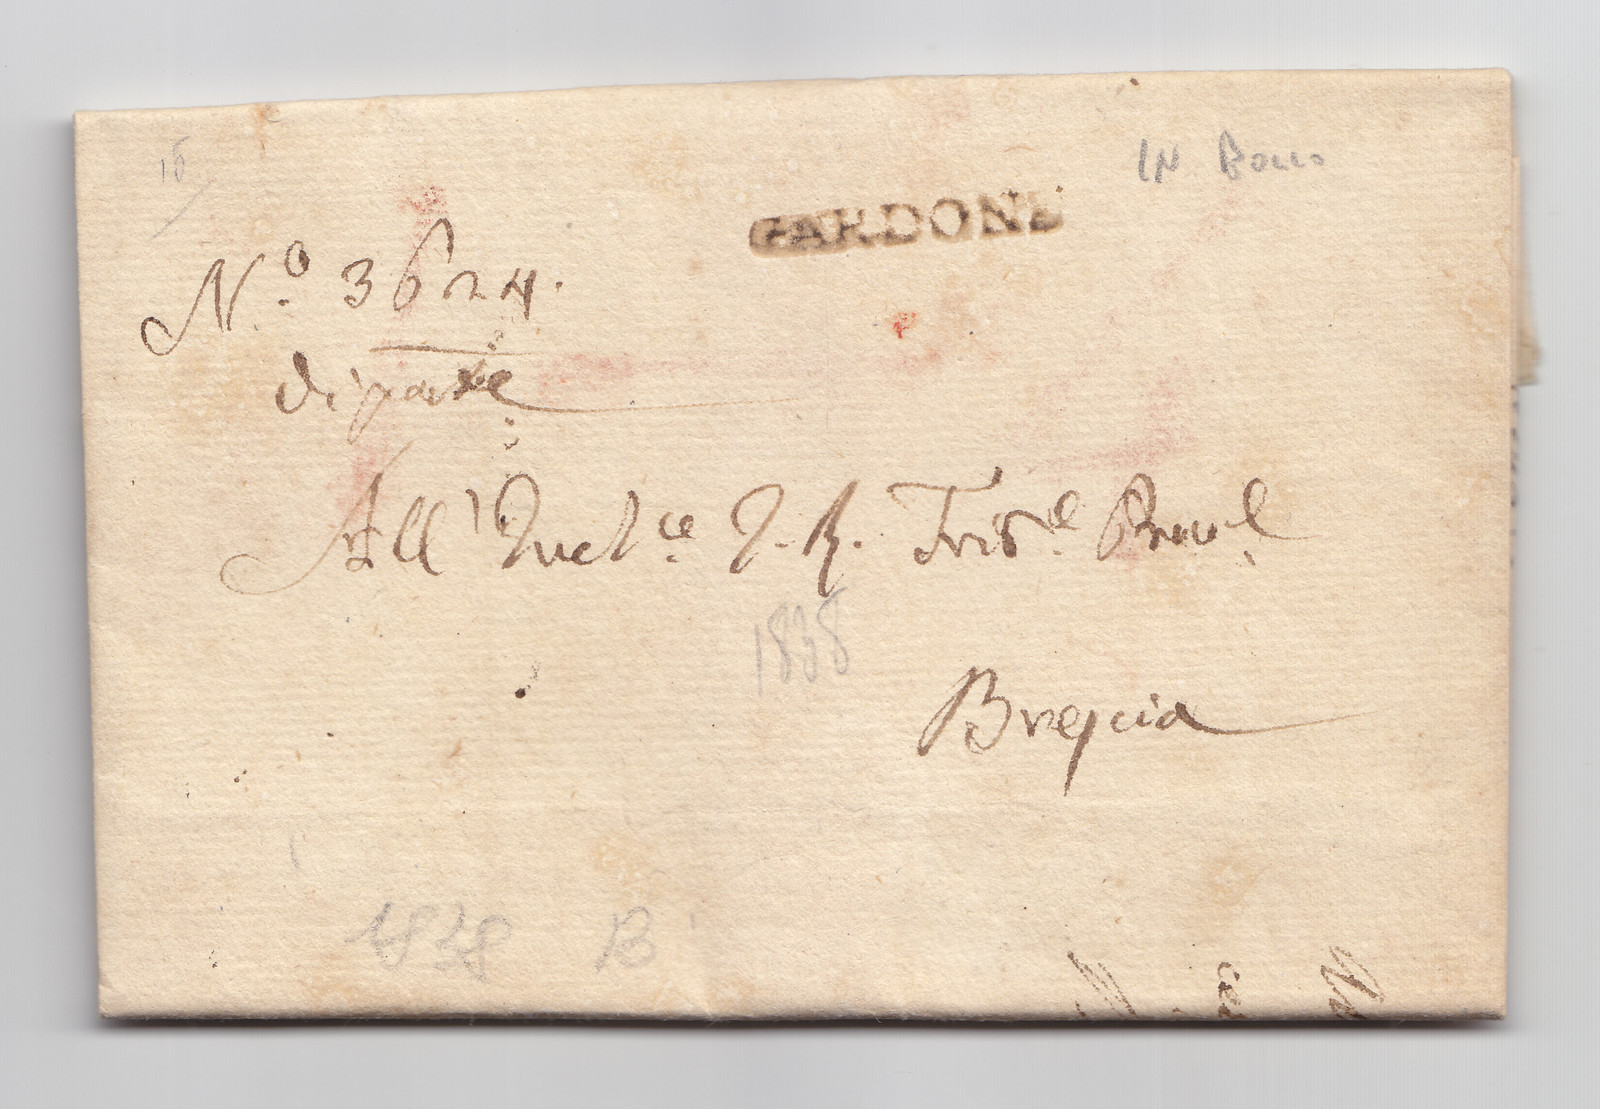 15
IN
GARDONE
N.o 3624.
di parte
All' Inclce I. R. Trible Provle
1838
Brescia
1838 B